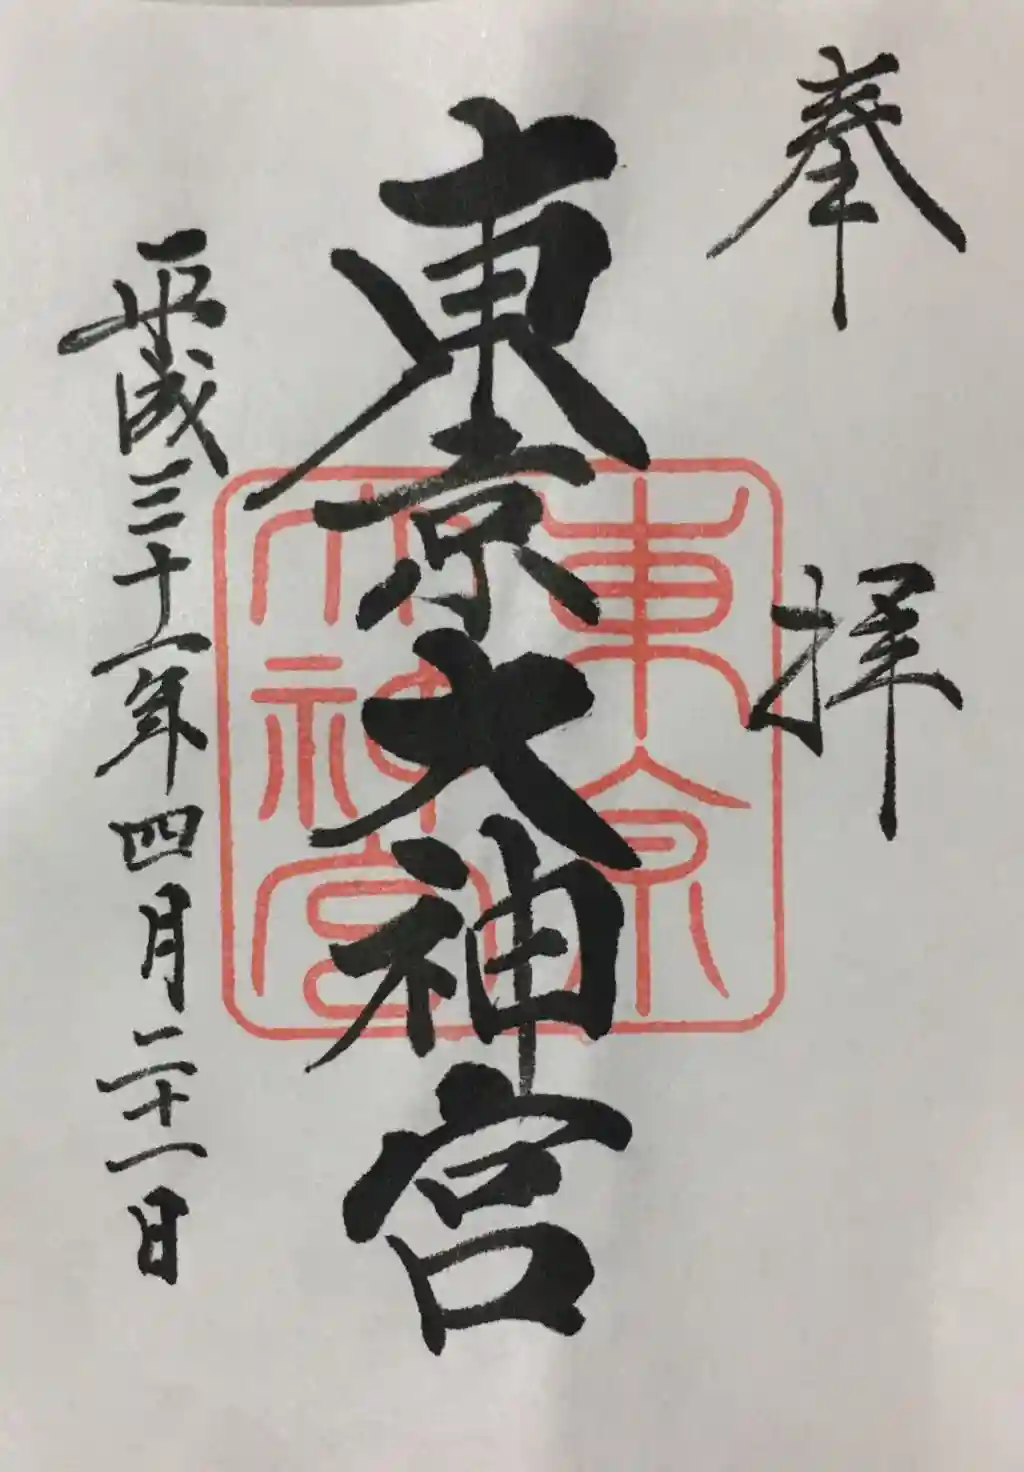 奉拝
東京大神宮
東京
大神宮
平成三十一年四月二十一日